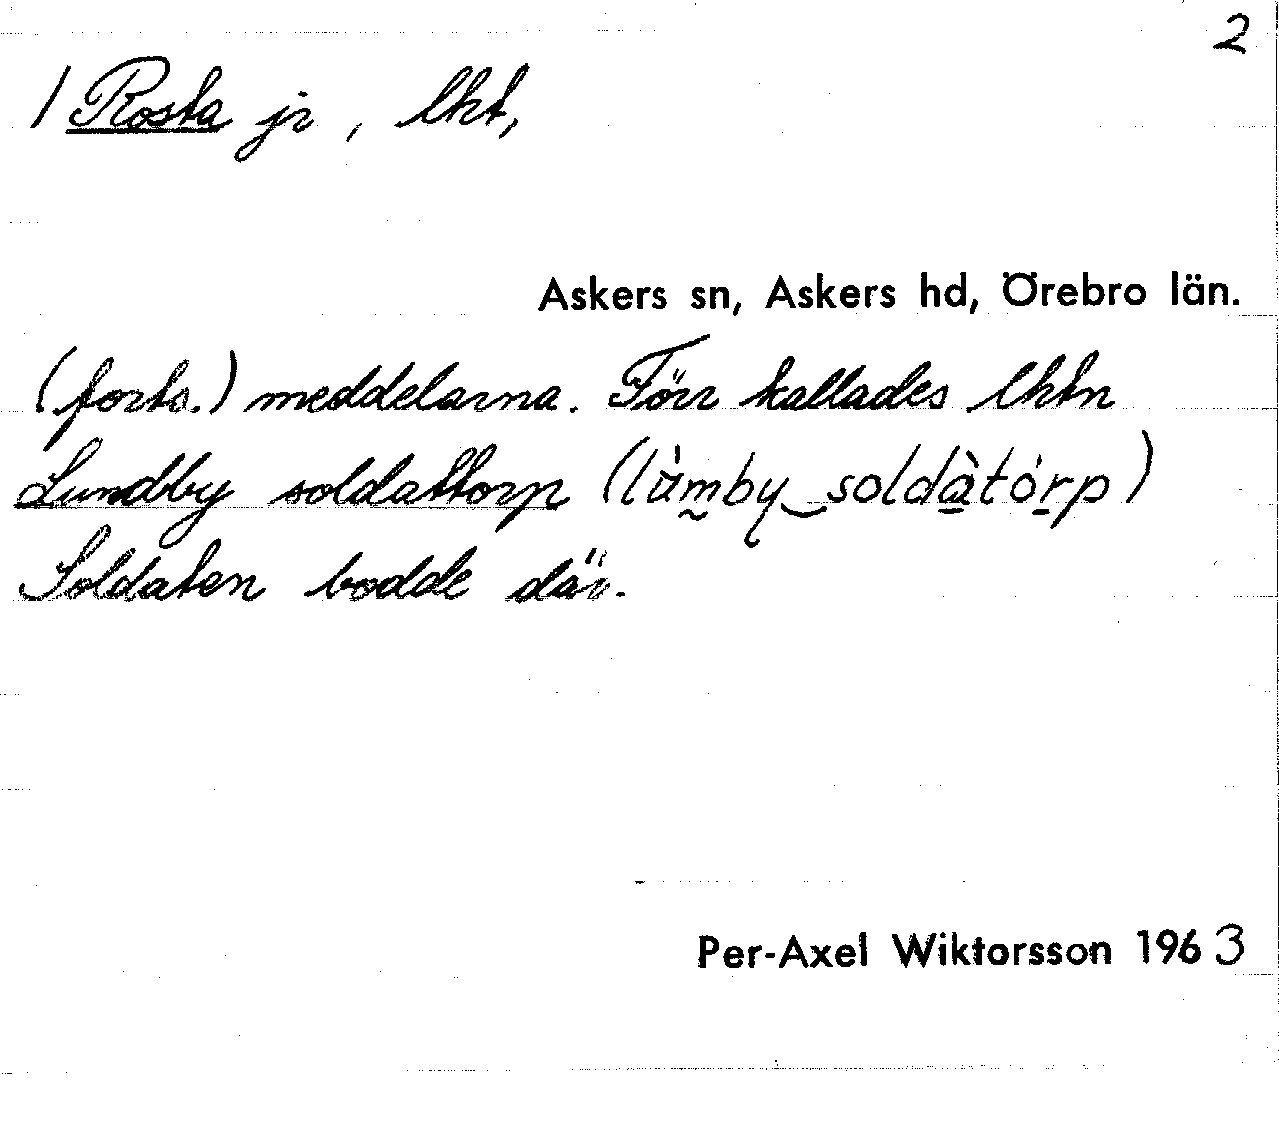 2
/ Rosta jr, lht,
Askers sn, Askers hd, Örebro län.
(forts.) meddelarna. Förr kallades lhtn
Lundby soldattorp (lùmby soldàtórp)
Soldaten bodde där.
Per-Axel Wiktorsson 1963